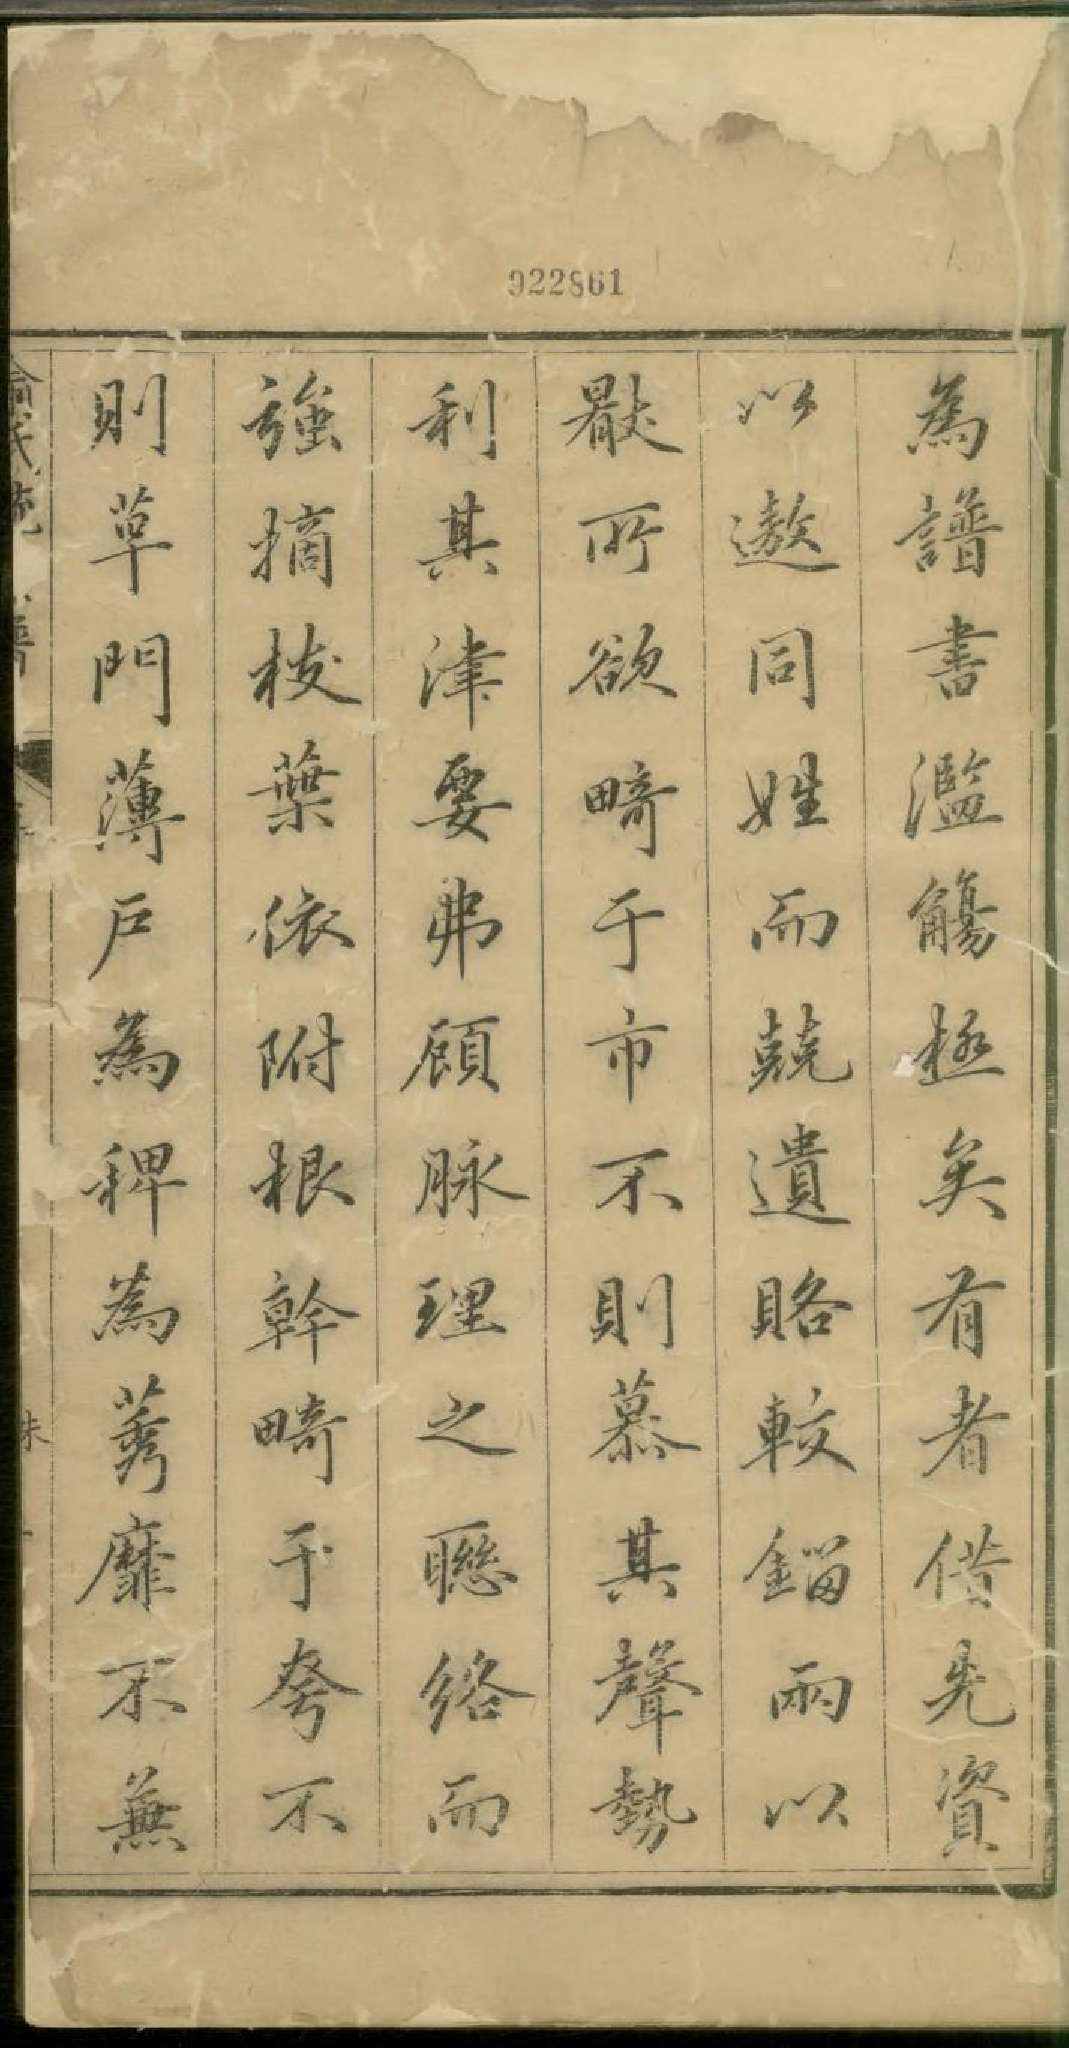 922861
為譜書濫觴極矣有者借先資
以遨同姓而兢遺賂較錙兩以
厭所欲畸于市不則慕其聲勢
利其津要弗顧脉理之聮絡而
強摘枝葉依附根幹畸于夸不
則草門薄戶為稗為莠靡不蕪